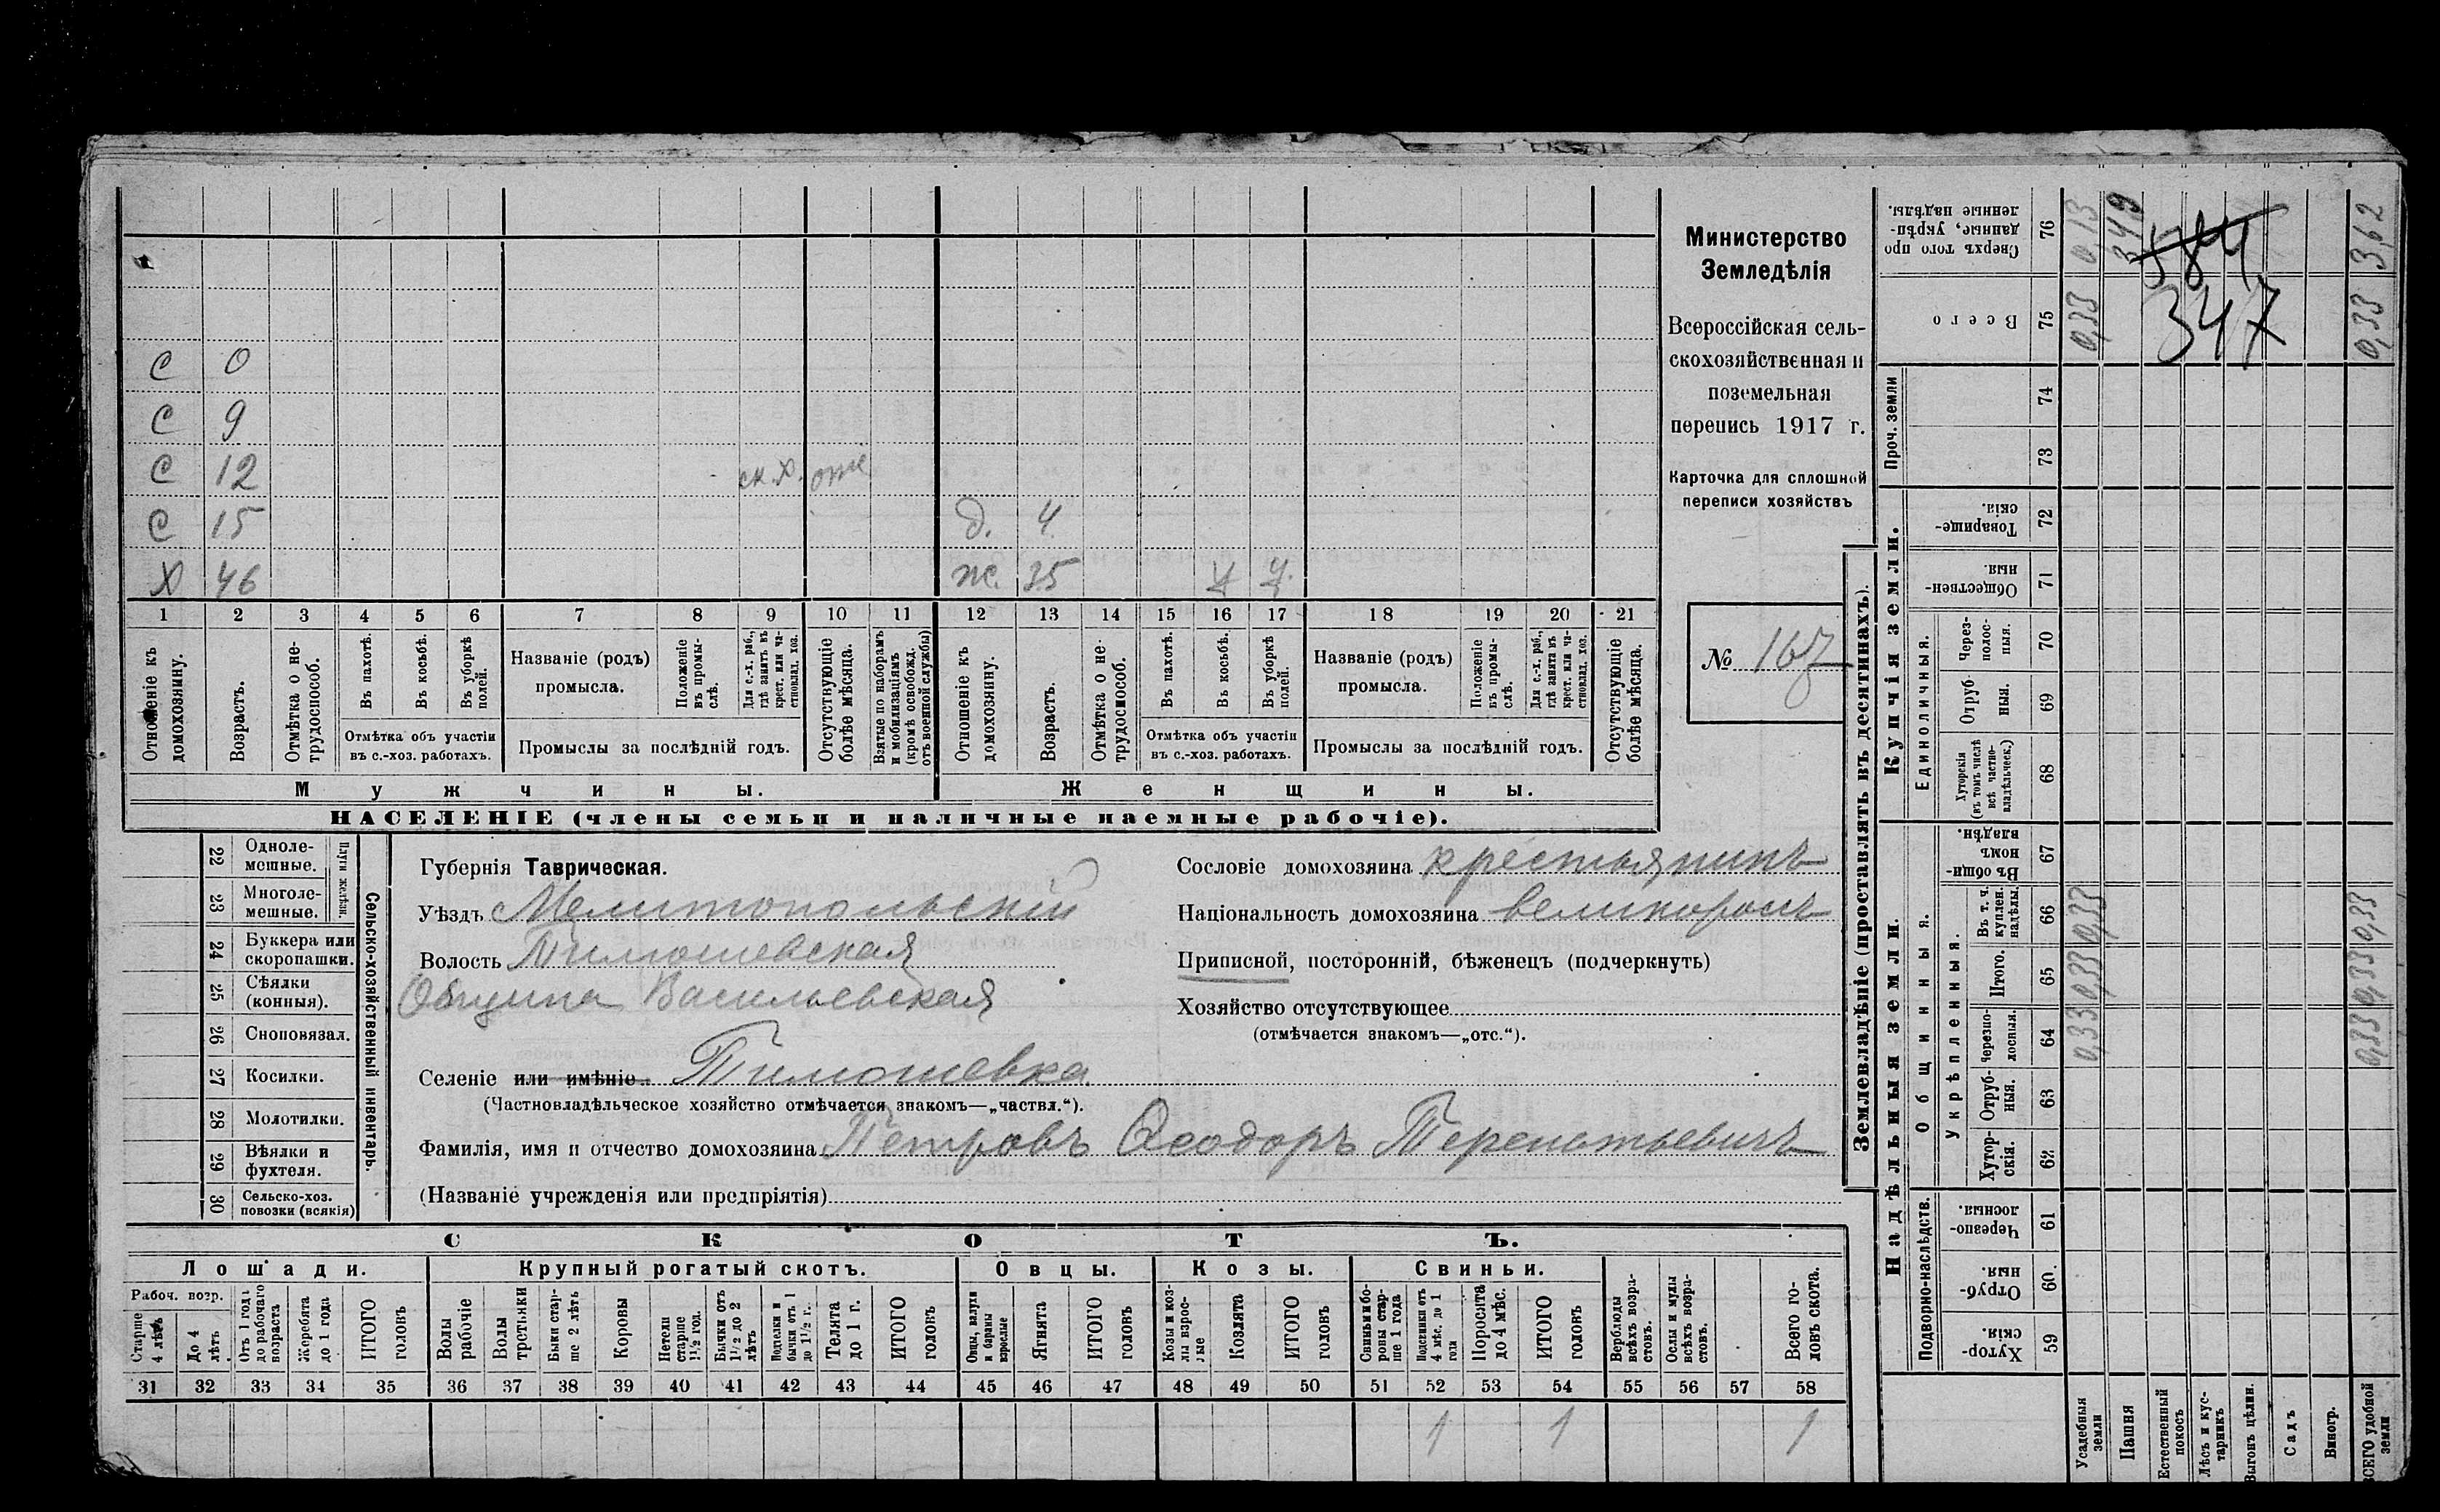 С 0
С 9
С 12 ск.х.
С 15 д. 4
Х 46 ж. 35 у у.
1 2 3 4 5 6 7 8 9 10 11 12 13 14 15 16 17 18 19 20 21
Отношеніе къ домохозяину.
Возрастъ.
Отмѣтка о не-трудоспособ.
Въ пахотѣ.
Въ косьбѣ.
Въ уборкѣ полей.
Отмѣтка объ участіи
въ с.-хоз. работахъ.
Названіе (родъ)
промысла.
Положеніе въ промы-слѣ.
Для с.-х. раб., гдѣ занятъ въ крест. или ча-стновлад. хоз.
Промыслы за послѣдній годъ.
Отсутствующіе болѣе мѣсяца.
Взятые по наборамъ и мобилизаціямъ (кромѣ освобожд. отъ военной службы)
Отношеніе къ домохозяину.
Возрастъ.
Отмѣтка о не-трудоспособ.
Въ пахотѣ.
Въ косьбѣ.
Въ уборкѣ полей.
Отмѣтка объ участіи
въ с.-хоз. работахъ.
Названіе (родъ)
промысла.
Положеніе въ промы-слѣ.
Для с.-х. раб., гдѣ занята въ крест. или ча-стновлад. хоз.
Промыслы за послѣдній годъ.
Отсутствующіе болѣе мѣсяца.
Мужчины.
Женщины.
НАСЕЛЕНІЕ (члены семьи и наличные наемные рабочіе).
Министерство
Земледѣлія
Всероссійская сель-
скохозяйственная и
поземельная
перепись 1917 г.
Карточка для сплошной
переписи хозяйствъ
№ 167
22 Одноле-мешные.
23 Многоле-мешные.
Плуги желѣзн.
24 Буккера или скоропашки.
25 Сѣялки (конныя).
26 Сноповязал.
27 Косилки.
28 Молотилки.
29 Вѣялки и фухтеля.
30 Сельско-хоз. повозки (всякія)
Сельско-хозяйственный инвентарь.
Губернія Таврическая.
Уѣздъ Мелитопольскій
Волость Тимошевская
Община Васильевская
Селеніе или имѣніе. Тимошевка
(Частновладѣльческое хозяйство отмѣчается знакомъ—„частвл.“).
Фамилія, имя и отчество домохозяина Петровъ Ѳеодоръ Терентьевичъ
(Названіе учрежденія или предпріятія)
Сословіе домохозяина крестьянинъ
Національность домохозяина великороссъ
Приписной, посторонній, бѣженецъ (подчеркнуть)
Хозяйство отсутствующее
(отмѣчается знакомъ—„отс.“).
СКОТЪ.
Лошади.
Крупный рогатый скотъ.
Овцы.
Козы.
Свиньи.
Рабоч. возр.
Старше 4 лѣтъ
До 4 лѣтъ
Отъ 1 года до рабочаго возраста
Жеребята до 1 года
ИТОГО головъ
Волы рабочіе
Волы третьяки
Быки стар-ше 2 лѣтъ
Коровы
Нетели старше 1½ год.
Бычки отъ 1½ до 2 лѣтъ
Подтелки и бычки отъ 1 до 1½ г.
Телята до 1 г.
ИТОГО головъ
Овцы, валухи и бараны взрослые
Ягнята
ИТОГО головъ
Козы и коз-лы взрос-лые
Козлята
ИТОГО головъ
Свиньи и бо-ровы стар-ше 1 года
Подсвинки отъ 4 мѣс. до 1 года
Поросята до 4 мѣс.
ИТОГО головъ
Верблюды всѣхъ возра-стовъ.
Ослы и мулы всѣхъ возра-стовъ.
Всего го-ловъ скота.
31 32 33 34 35 36 37 38 39 40 41 42 43 44 45 46 47 48 49 50 51 52 53 54 55 56 57 58
1 1 1
Землевладѣніе (проставлять въ десятинахъ).
Надѣльныя земли.
Купчія земли.
Проч. земли
Подворно-наслѣдств.
Общинныя.
Укрѣпленныя.
Единоличныя.
59 Хутор-скія.
60 Отруб-ныя.
61 Черезпо-лосныя.
62 Хутор-скія.
63 Отруб-ныя.
64 Черезпо-лосныя.
65 Итого.
66 Въ т. ч. куплен. надѣлы.
67 Въ общи-номъ владѣн.
68 Хуторскія (въ томъ числѣ всѣ частно-владѣльческ.)
69 Отруб-ныя.
70 Через-полос-ныя.
71 Обществен-ныя.
72 Товарище-скія.
73
74
75 Всего
76 Сверхъ того про данные, укрѣп-ленные надѣлы.
Усадебныя земли 0,33 0,33 0,33 0,33 0,13
Пашня 349
Естественный покосъ
Лѣсъ и кус-тарникъ
Выгонъ цѣлин.
Садъ
Виногр.
ВСЕГО удобной земли 0,33 0,33 0,33 0,33 3,62
584
347